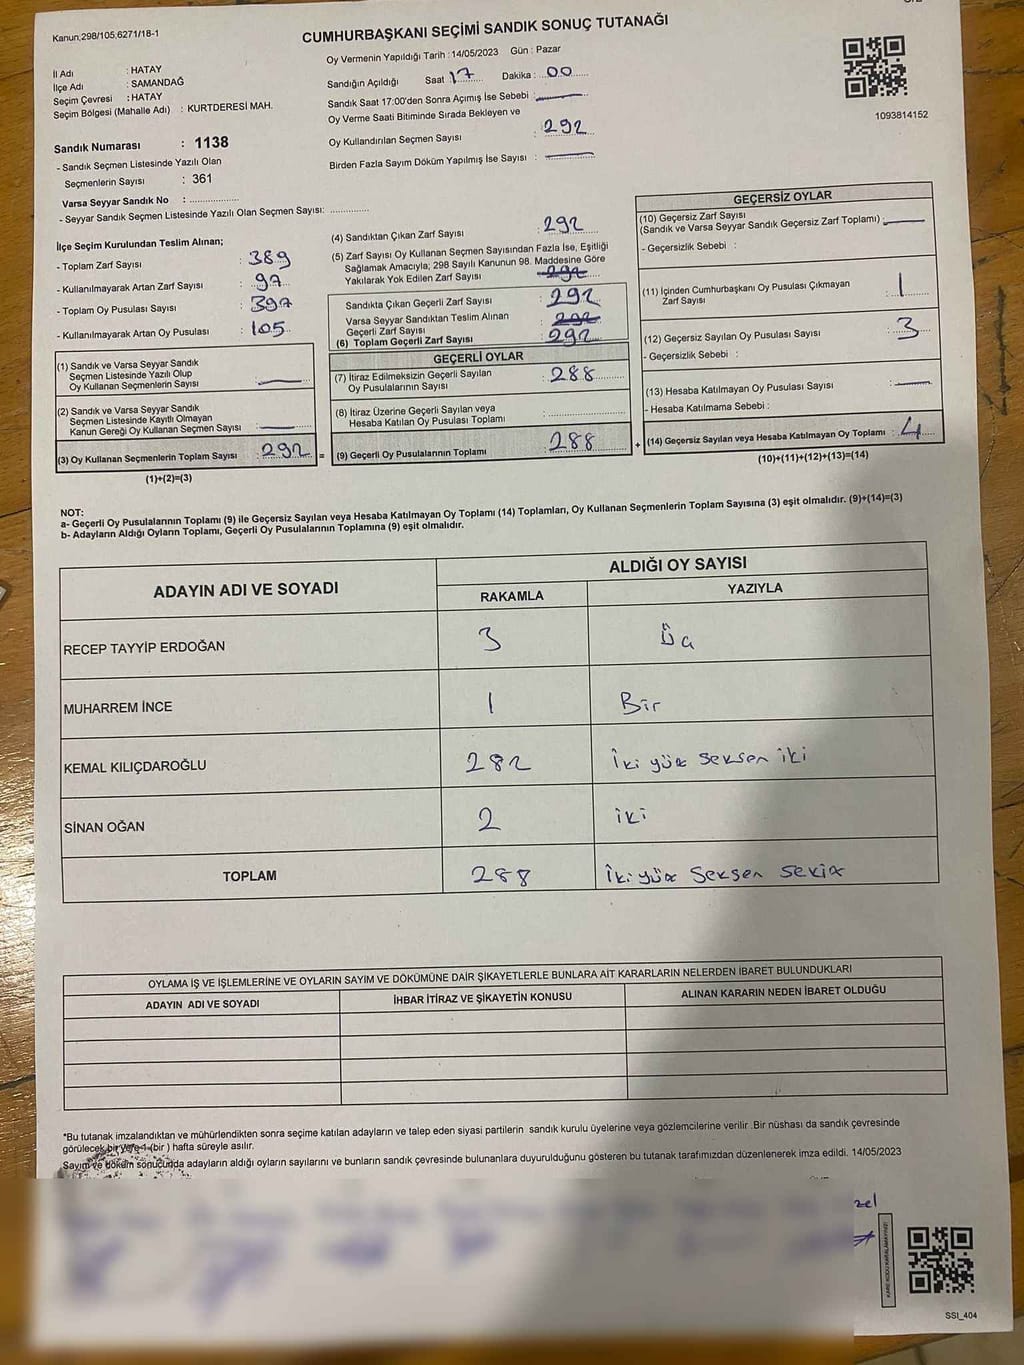 Kanun,298/105,6271/18-1
CUMHURBAŞKANI SEÇİMİ SANDIK SONUÇ TUTANAĞI
Oy Vermenin Yapıldığı Tarih : 14/05/2023 Gün : Pazar
İl Adı : HATAY
İlçe Adı : SAMANDAĞ
Seçim Çevresi : HATAY
Seçim Bölgesi (Mahalle Adı) : KURTDERESİ MAH.
Sandığın Açıldığı Saat 17 Dakika : 00
Sandık Saat 17:00'den Sonra Açımış İse Sebebi :
Oy Verme Saati Bitiminde Sırada Bekleyen ve
Oy Kullandırılan Seçmen Sayısı : 292
Birden Fazla Sayım Döküm Yapılmış İse Sayısı :
1093814152
Sandık Numarası : 1138
- Sandık Seçmen Listesinde Yazılı Olan
Seçmenlerin Sayısı : 361
Varsa Seyyar Sandık No :
- Seyyar Sandık Seçmen Listesinde Yazılı Olan Seçmen Sayısı:
İlçe Seçim Kurulundan Teslim Alınan;
- Toplam Zarf Sayısı : 389
- Kullanılmayarak Artan Zarf Sayısı : 97
- Toplam Oy Pusulası Sayısı : 397
- Kullanılmayarak Artan Oy Pusulası : 105
(1) Sandık ve Varsa Seyyar Sandık
Seçmen Listesinde Yazılı Olup
Oy Kullanan Seçmenlerin Sayısı :
(2) Sandık ve Varsa Seyyar Sandık
Seçmen Listesinde Kayıtlı Olmayan
Kanun Gereği Oy Kullanan Seçmen Sayısı :
(3) Oy Kullanan Seçmenlerin Toplam Sayısı : 292 =
(1)+(2)=(3)
(4) Sandıktan Çıkan Zarf Sayısı : 292
(5) Zarf Sayısı Oy Kullanan Seçmen Sayısından Fazla İse, Eşitliği
Sağlamak Amacıyla; 298 Sayılı Kanunun 98. Maddesine Göre
Yakılarak Yok Edilen Zarf Sayısı : 292
Sandıkta Çıkan Geçerli Zarf Sayısı : 292
Varsa Seyyar Sandıktan Teslim Alınan
Geçerli Zarf Sayısı : 292
(6) Toplam Geçerli Zarf Sayısı : 292
GEÇERLİ OYLAR
(7) İtiraz Edilmeksizin Geçerli Sayılan
Oy Pusulalarının Sayısı : 288
(8) İtiraz Üzerine Geçerli Sayılan veya
Hesaba Katılan Oy Pusulası Toplamı :
(9) Geçerli Oy Pusulalarının Toplamı : 288 +
GEÇERSİZ OYLAR
(10) Geçersiz Zarf Sayısı
(Sandık ve Varsa Seyyar Sandık Geçersiz Zarf Toplamı) :
- Geçersizlik Sebebi :
(11) İçinden Cumhurbaşkanı Oy Pusulası Çıkmayan
Zarf Sayısı : 1
(12) Geçersiz Sayılan Oy Pusulası Sayısı : 3
- Geçersizlik Sebebi :
(13) Hesaba Katılmayan Oy Pusulası Sayısı :
- Hesaba Katılmama Sebebi :
(14) Geçersiz Sayılan veya Hesaba Katılmayan Oy Toplamı : 4
(10)+(11)+(12)+(13)=(14)
NOT:
a- Geçerli Oy Pusulalarının Toplamı (9) ile Geçersiz Sayılan veya Hesaba Katılmayan Oy Toplamı (14) Toplamları, Oy Kullanan Seçmenlerin Toplam Sayısına (3) eşit olmalıdır. (9)+(14)=(3)
b- Adayların Aldığı Oyların Toplamı, Geçerli Oy Pusulalarının Toplamına (9) eşit olmalıdır.
ADAYIN ADI VE SOYADI ALDIĞI OY SAYISI
RAKAMLA YAZIYLA
RECEP TAYYİP ERDOĞAN 3 Üç
MUHARREM İNCE 1 Bir
KEMAL KILIÇDAROĞLU 282 İki yüz seksen iki
SİNAN OĞAN 2 iki
TOPLAM 288 İki yüz Seksen Sekiz
OYLAMA İŞ VE İŞLEMLERİNE VE OYLARIN SAYIM VE DÖKÜMÜNE DAİR ŞİKAYETLERLE BUNLARA AİT KARARLARIN NELERDEN İBARET BULUNDUKLARI
ADAYIN ADI VE SOYADI İHBAR İTİRAZ VE ŞİKAYETİN KONUSU ALINAN KARARIN NEDEN İBARET OLDUĞU
*Bu tutanak imzalandıktan ve mühürlendikten sonra seçime katılan adayların ve talep eden siyasi partilerin sandık kurulu üyelerine veya gözlemcilerine verilir .Bir nüshası da sandık çevresinde
görülecek bir yere 1 (bir ) hafta süreyle asılır.
Sayım ve döküm sonucunda adayların aldığı oyların sayılarını ve bunların sandık çevresinde bulunanlara duyurulduğunu gösteren bu tutanak tarafımızdan düzenlenerek imza edildi. 14/05/2023
zel
KARE KODU KARALAMAYINIZ!
SSI_404